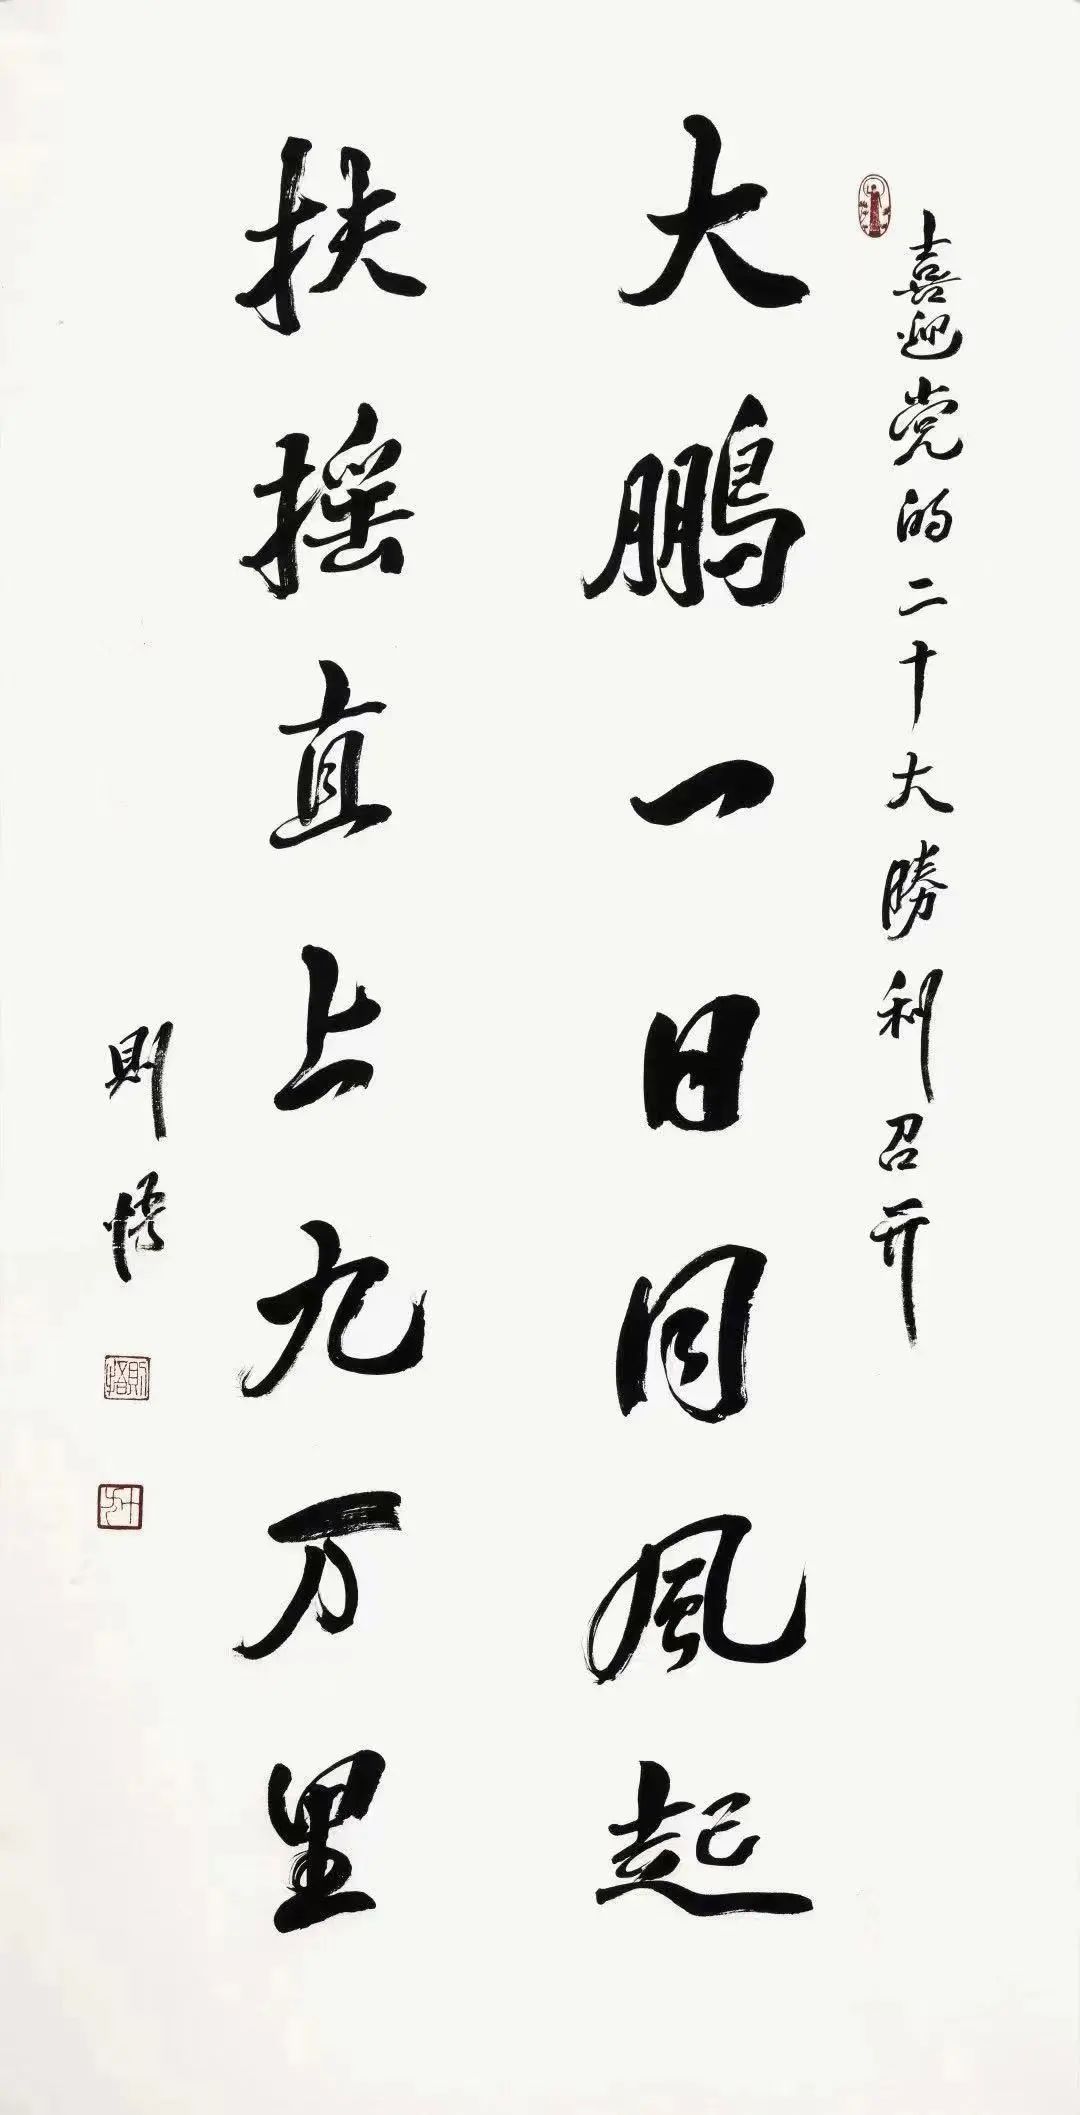 喜迎党的二十大勝利召开
大鹏一日同風起
扶摇直上九万里
則悟